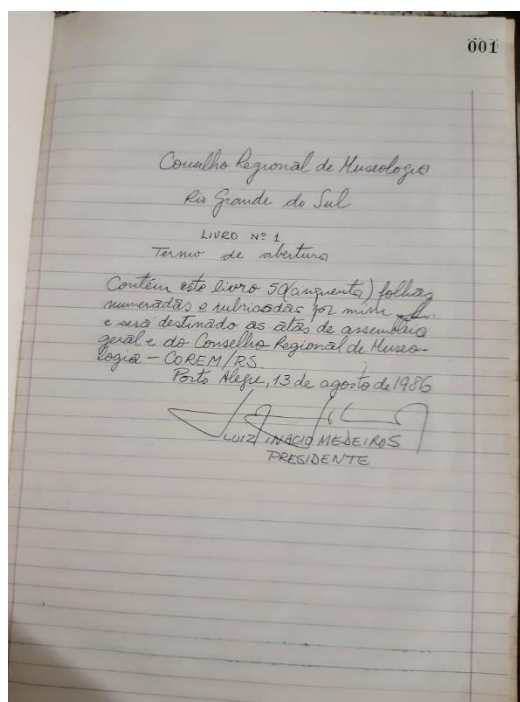 001
Conselho Regional de Museologia
Rio Grande do Sul
LIVRO Nº 1
Termo de abertura
Contém este livro 50(cinquenta) folhas
numeradas e rubricadas por mim
e será destinado as atas de assembleia
geral e do Conselho Regional de Museo-
logia - COREM/RS.
Porto Alegre, 13 de agosto de 1986
LUIZ INACIO MEDEIROS
PRESIDENTE